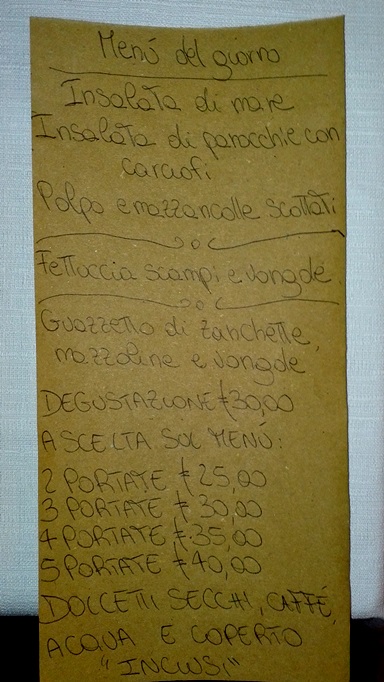 Menú del giorno
Insalata di mare
Insalata di panocchie con
carciofi
Polpo e mazzancolle scottati
Fettuccia scampi e vongole
Guazzetto di zanchette,
mazzoline e vongole
DEGUSTAZIONE €30,00
A SCELTA SUL MENÚ:
2 PORTATE € 25,00
3 PORTATE € 30,00
4 PORTATE €.35,00
5 PORTATE € 40,00
DOLCETTI SECCHI, CAFFÉ,
ACQUA E COPERTO
"INCLUSI"